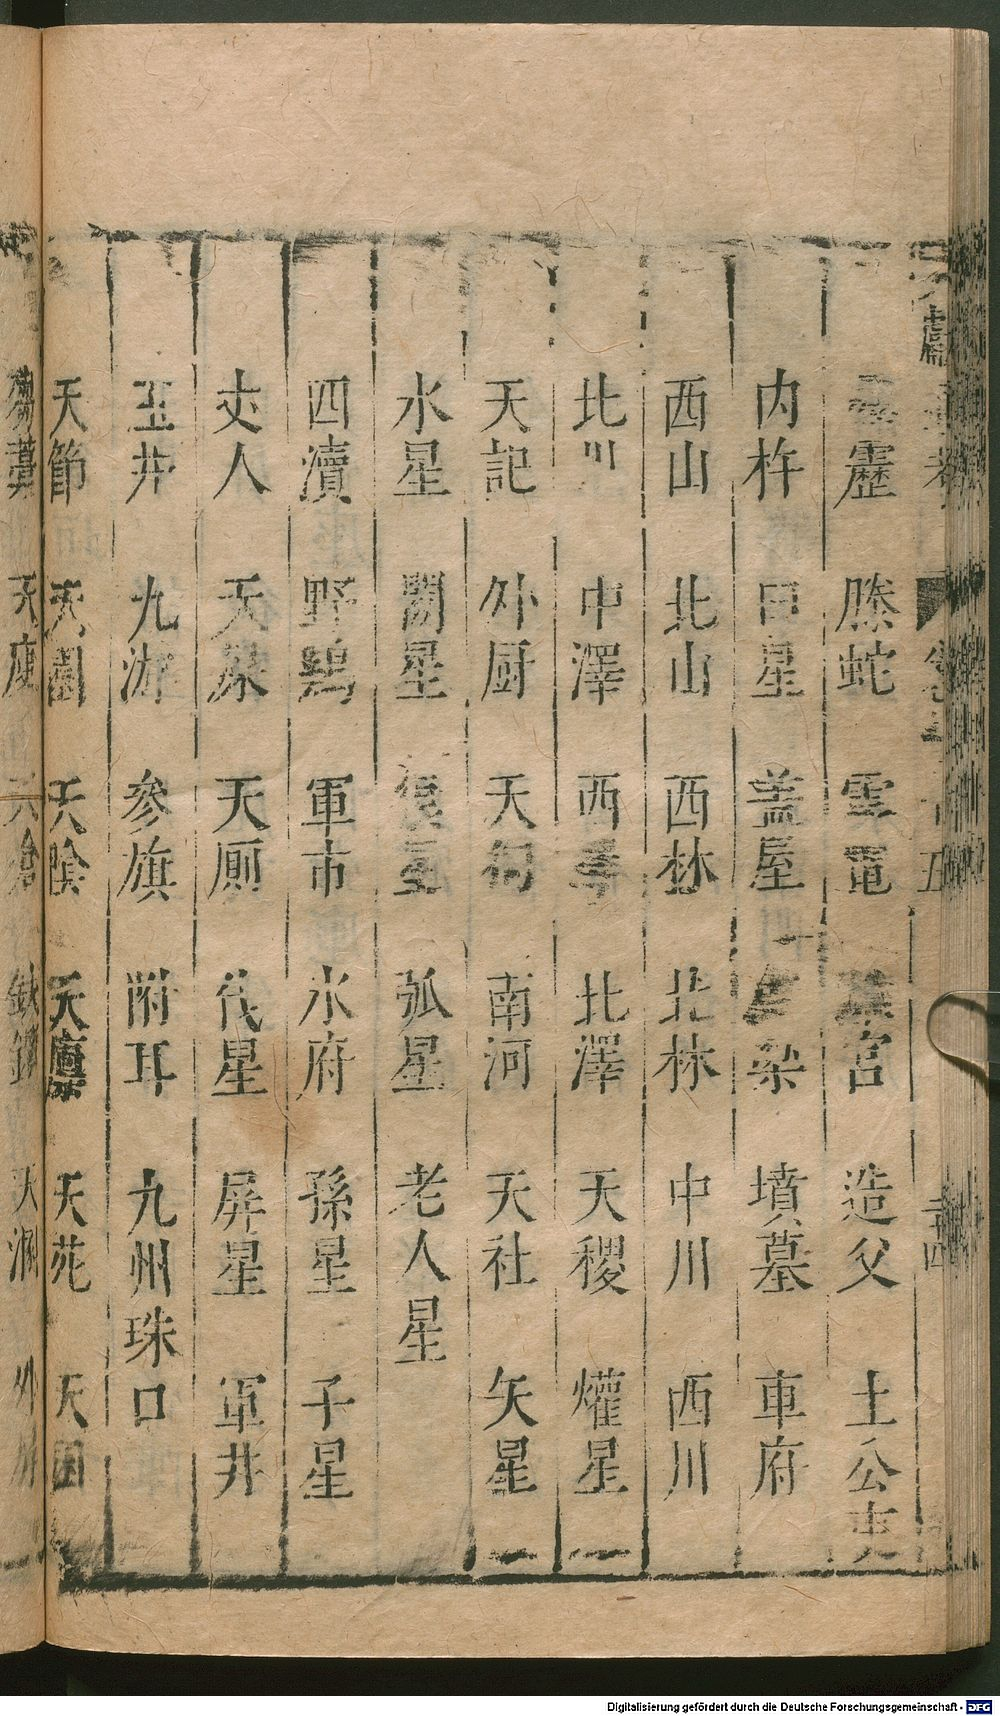 靂 螣蛇 雲電 宮 造父 土公吏
内杵 臼星 盖屋 梁 墳墓 車府
西山 北山 西林 北林 中川 西川
北川 中澤 西 北澤 天稷 爟星
天記 外厨 天狗 南河 天社 矢星
水星 闕星 星 弧星 老人星
四瀆 野鷄 軍市 水府 孫星 子星
丈人 天 天厠 伐星 屏星 軍井
玉井 九游 參旗 附耳 九州珠口
天節 天園 天陰 天廩 天苑 天囷
芻藁 天庾 天倉 鈇鑕 天溷 外屏
Digitalisierung gefördert durch die Deutsche Forschungsgemeinschaft - DFG